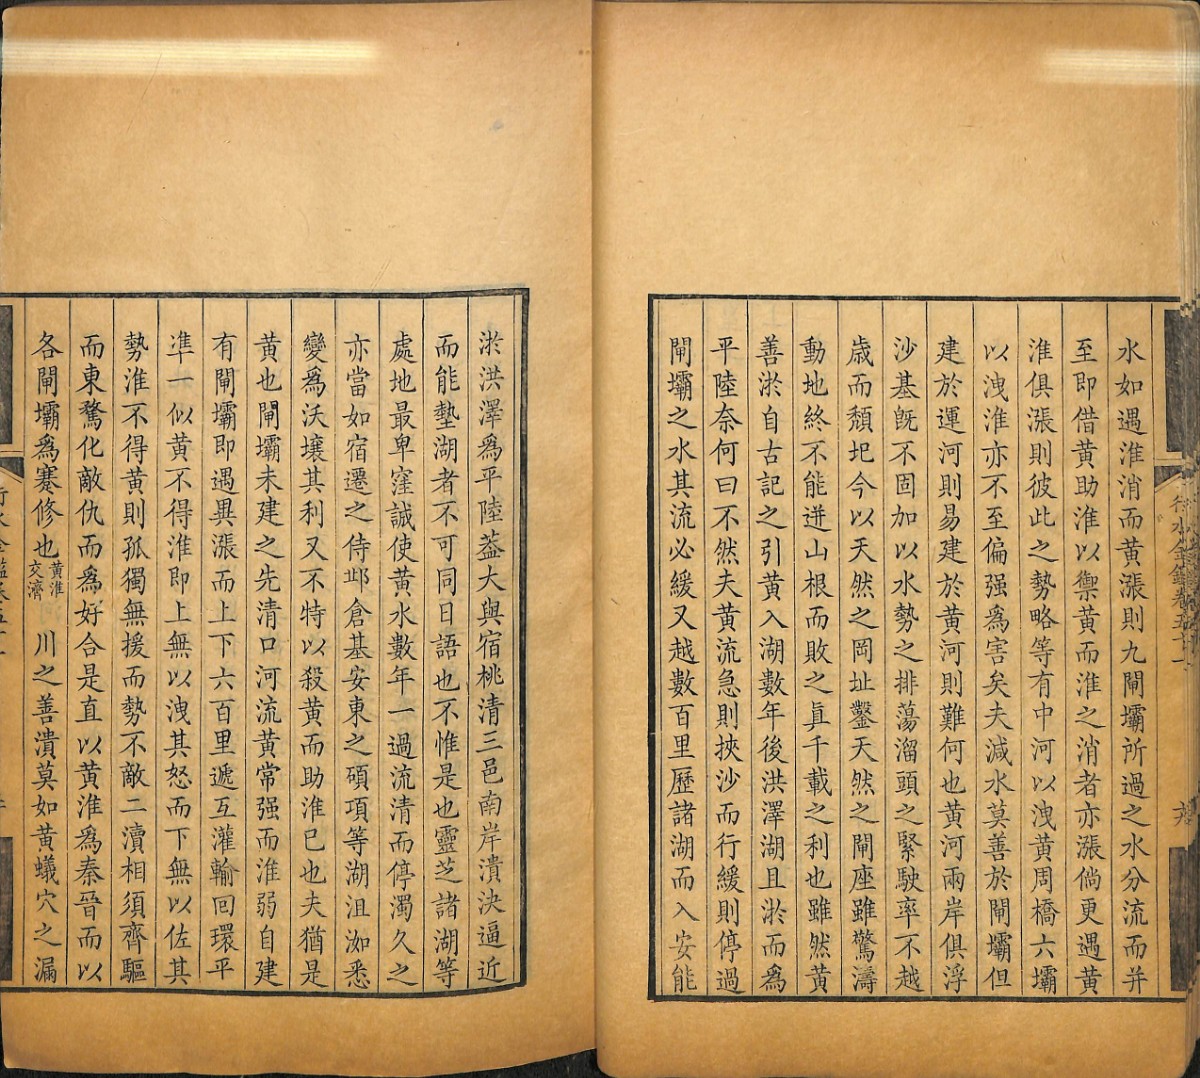 水如遇淮消而黄漲則九閘壩所過之水分流而并
至即借黄助淮以禦黄而淮之消者亦漲倘更遇黄
淮俱漲則彼此之勢略等有中河以洩黄周橋六壩
以洩淮亦不至偏强爲害矣夫減水莫善於閘壩但
建於運河則易建於黄河則難何也黄河兩岸俱浮
沙基旣不固加以水勢之排蕩溜頭之緊駛率不越
歳而頽圯今以天然之岡址鑿天然之閘座雖驚濤
動地終不能迸山根而敗之眞千載之利也雖然黄
善淤自古記之引黄入湖數年後洪澤湖且淤而爲
平陸奈何曰不然夫黄流急則挾沙而行緩則停過
閘壩之水其流必緩又越數百里歷諸湖而入安能
淤洪澤爲平陸葢大與宿桃清三邑南岸潰決逼近
而能墊湖者不可同日語也不惟是也靈芝諸湖等
處地最卑窪誠使黄水數年一過流清而停濁久之
亦當如宿遷之侍邱倉基安東之碩項等湖沮洳悉
變爲沃壤其利又不特以殺黄而助淮已也夫猶是
黄也閘壩未建之先清口河流黄常强而淮弱自建
有閘壩即遇異漲而上下六百里遞互灌輸回環平
凖一似黄不得淮即上無以洩其怒而下無以佐其
勢淮不得黄則孤獨無援而勢不敵二瀆相須齊驅
而東鶩化敵仇而爲好合是直以黄淮爲秦晉而以
各閘壩爲蹇修也黄淮交濟 川之善潰莫如黄蟻穴之漏